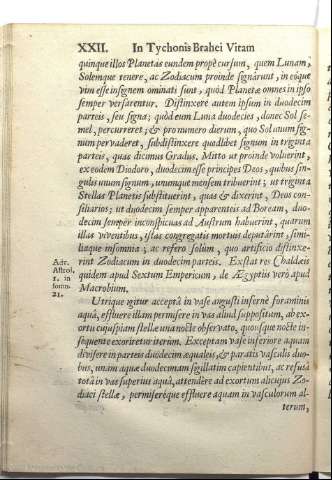 XXII. In Tychonis Brahei Vitam
quinque illos Planetas eundem propè cursum, quem Lunam,
Solemque tenere, ac Zodiacum proinde signârunt, in eòque
vim esse insignem ominati sunt, quòd Planetæ omnes in ipso
semper versarentur. Distinxere autem ipsum in duodecim
parteis, seu signa; quòd eum Luna duodecies, donec Sol se-
mel, percurreret; & pro numero dierum, quo Sol unum sig-
num pervaderet, subdistinxere quodlibet signum in triginta
parteis, quas dicimus Gradus. Mitto ut proinde voluerint,
ex eodem Diodoro, duodecim esse principes Deos, quibus sin-
gulis unum signum, unumque mensem tribuerint; ut triginta
Stellas Planetis substituerint, quas & dixerint, Deos con-
siliarios; ut duodecim semper apparenteis ad Boream, duo-
decim semper inconspicuas ad Austrum habuerint, quarum
illas viventibus, istas congregatis mortuis deputârint, simi-
liaque insomnia; ac refero solùm, quo artificio distinxe-
rint Zodiacum in duodecim parteis. Exstat res Chaldæis
quidem apud Sextum Empericum, de Ægyptiis verò apud
Macrobium.
Adv.
Astrol.
1. in
somn.
21.
Utrique igitur acceptâ in vase angusti infernè foraminis
aquâ, effluere illam permisere in vas aliud suppositum, ab exor-
tu cujuspiam stellæ una nocte observato, quousque nocte in-
sequente exoriretur iterùm. Exceptam vase inferiore aquam
divisere in parteis duodecim æqualeis, & paratis vasculis duo-
bus, unam aquæ duodecimam sigillatim capientibus, ac refusâ
totâ in vas superius aquâ, attendêre ad exortum alicujus Zo-
diaci stellæ, permiserêque effluere aquam in vasculorum al-
terum,